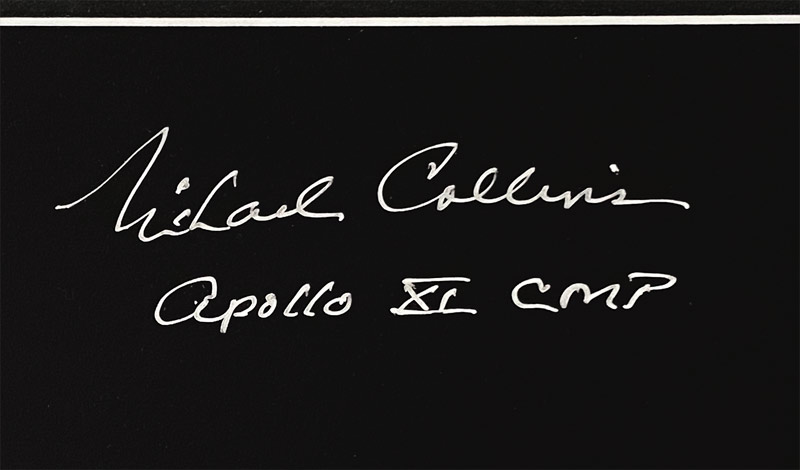 Michael Collins
Apollo XI CMP